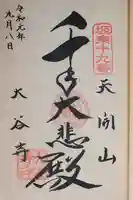 坂東十九番
天開山
千手大悲殿
大谷寺
令和元年
九月八日